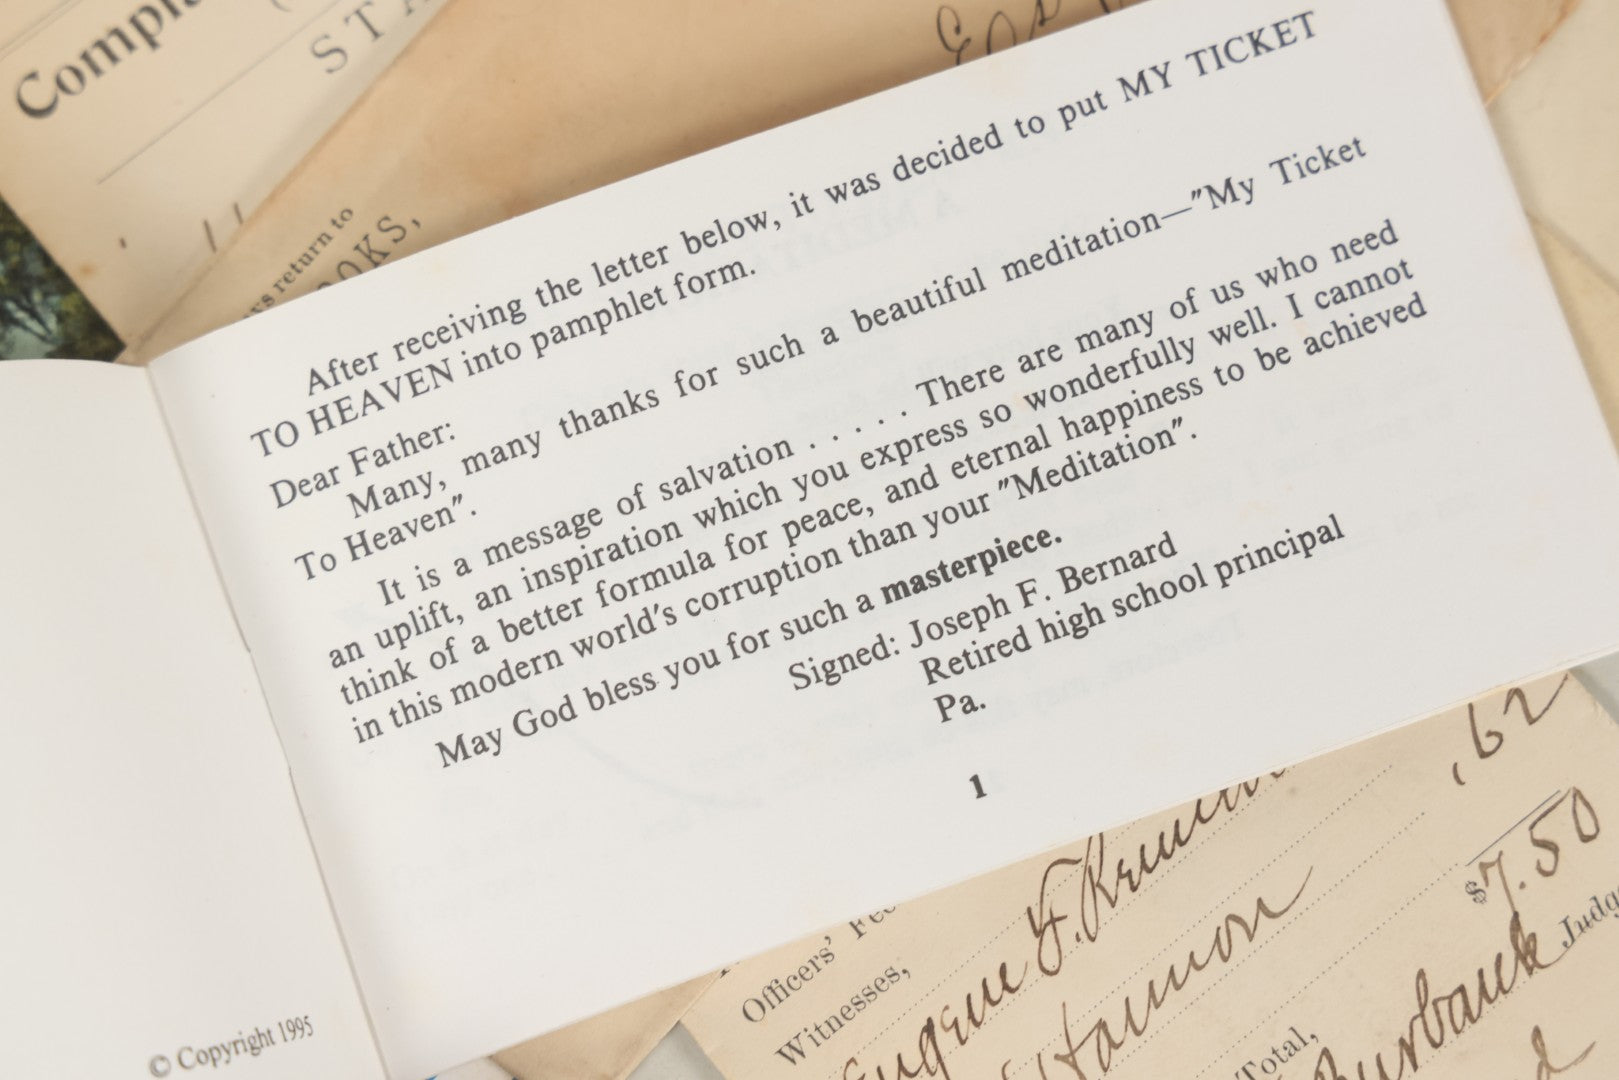 STA
rs return to
OOKS,
After receiving the letter below, it was decided to put MY TICKET
TO HEAVEN into pamphlet form.
Dear Father:
Many, many thanks for such a beautiful meditation—"My Ticket
To Heaven".
It is a message of salvation . . . . . There are many of us who need
an uplift, an inspiration which you express so wonderfully well. I cannot
think of a better formula for peace, and eternal happiness to be achieved
in this modern world's corruption than your "Meditation".
May God bless you for such a masterpiece.
Signed: Joseph F. Bernard
Retired high school principal
Pa.
1
© Copyright 1995
,62
$7.50
Officers' Fee
Witnesses,
Eugene F.
Harmon
Total,
Burbank Judge